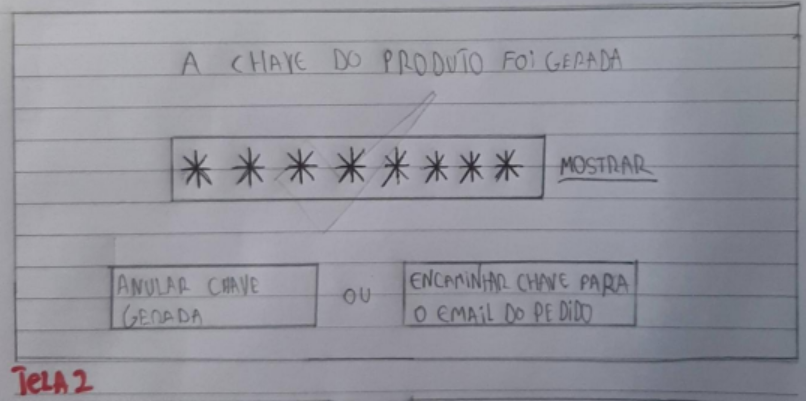 A CHAVE DO PRODUTO FOI GERADA
******** MOSTRAR
ANULAR CHAVE GERADA
OU
ENCAMINHAR CHAVE PARA
O EMAIL DO PEDIDO
TELA 2